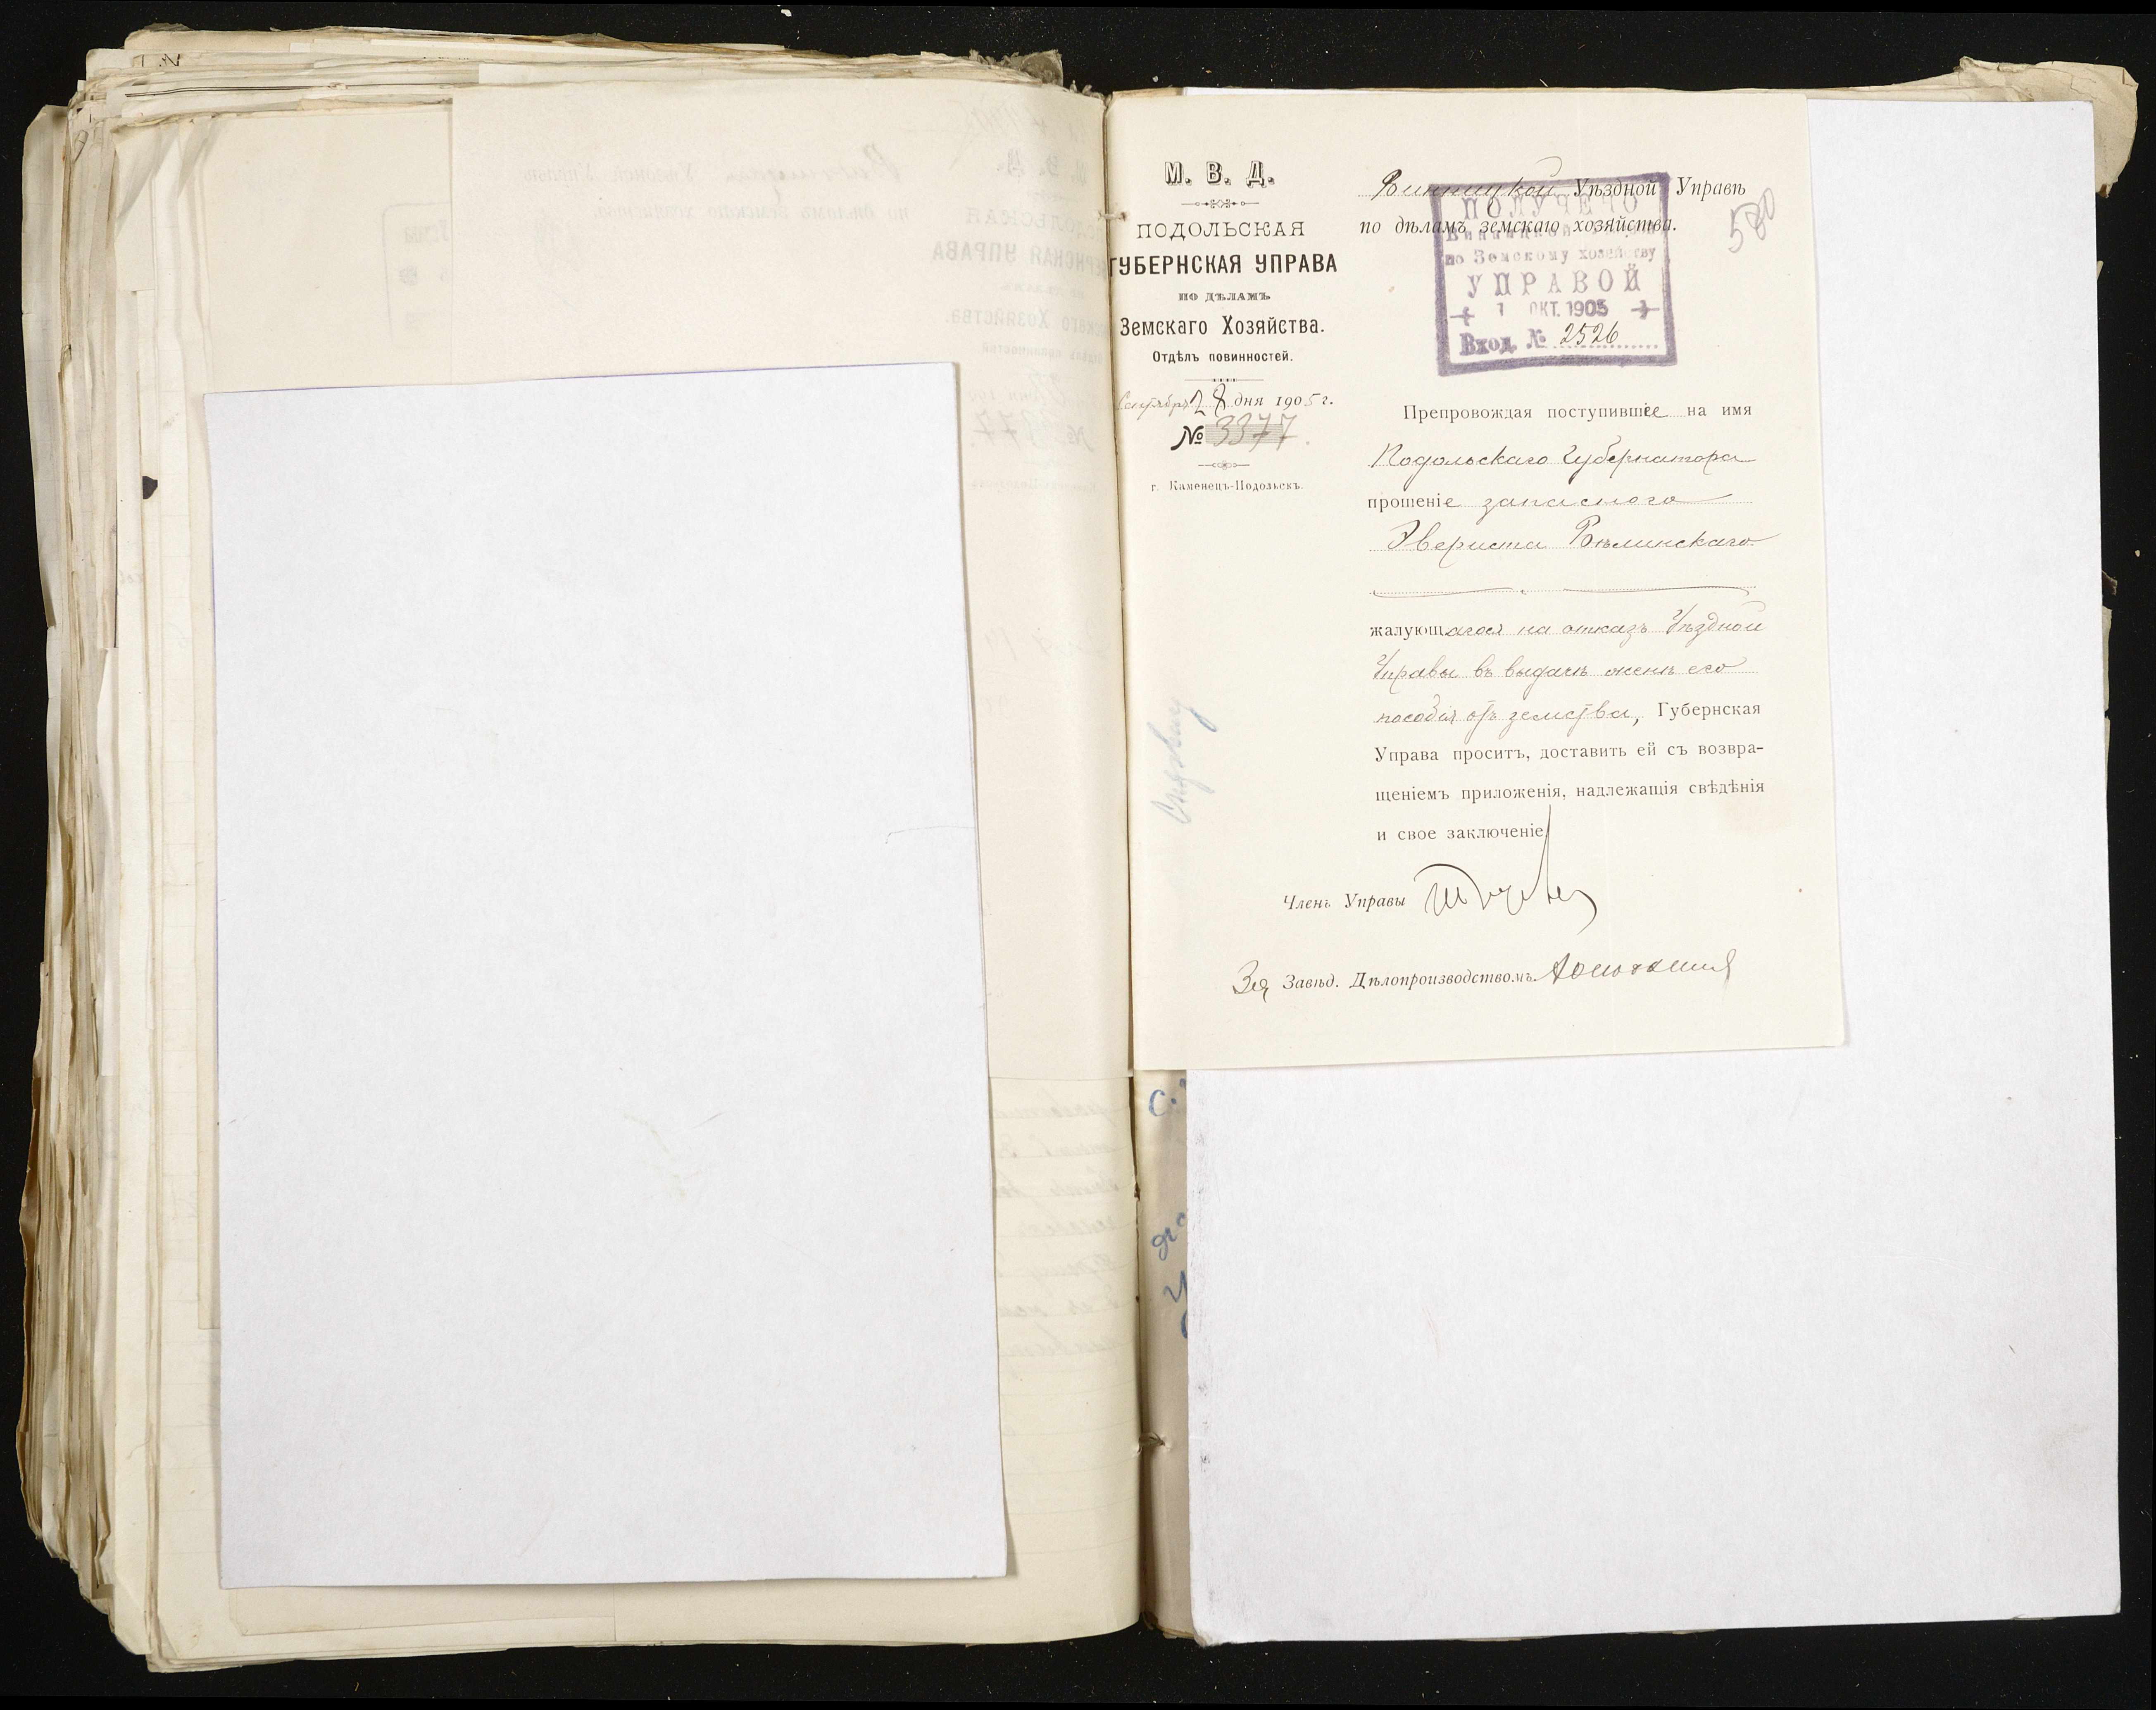 М. В. Д.
ПОДОЛЬСКАЯ
ГУБЕРНСКАЯ УПРАВА
ПО ДѢЛАМЪ
Земскаго Хозяйства.
Отдѣлъ повинностей.
Сентября 28 дня 1905 г.
№ 3377.
г. Каменецъ-Подольскъ.
Винницкой Уѣздной Управѣ
по дѣламъ земскаго хозяйства.
580
ПОЛУЧЕНО
Винницкой
по Земскому хозяйству
УПРАВОЙ
1 ОКТ. 1905
Вход. № 2526
Препровождая поступившее на имя
Подольскаго Губернатора
прошеніе запасного
Эвериста Вѣлинскаго
жалующагося на отказъ Уѣздной
Управы въ выдачѣ женѣ его
пособія отъ земства, Губернская
Управа проситъ, доставить ей съ возвра-
щеніемъ приложенія, надлежащія свѣдѣнія
и свое заключеніе.
Членъ Управы
За Завѣд. Дѣлопроизводствомъ